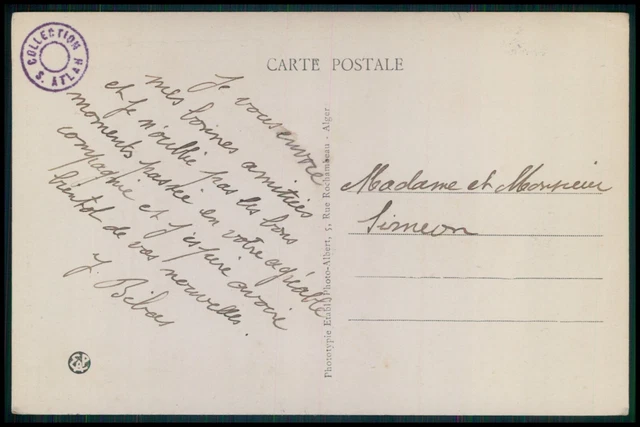 COLLECTION
S. ATLAH
CARTE POSTALE
Je vous envoie
mes bonnes amitiés
et je n'oublie pas les bons
moments passée en votre agréable
compagnie et j'espère avoire
bientôt de vos nouvelles.
Y. Bibas
Phototypie Etabl. Photo-Albert, 5, Rue Rochambeau - Alger
Madame et Monsieur
Simeon